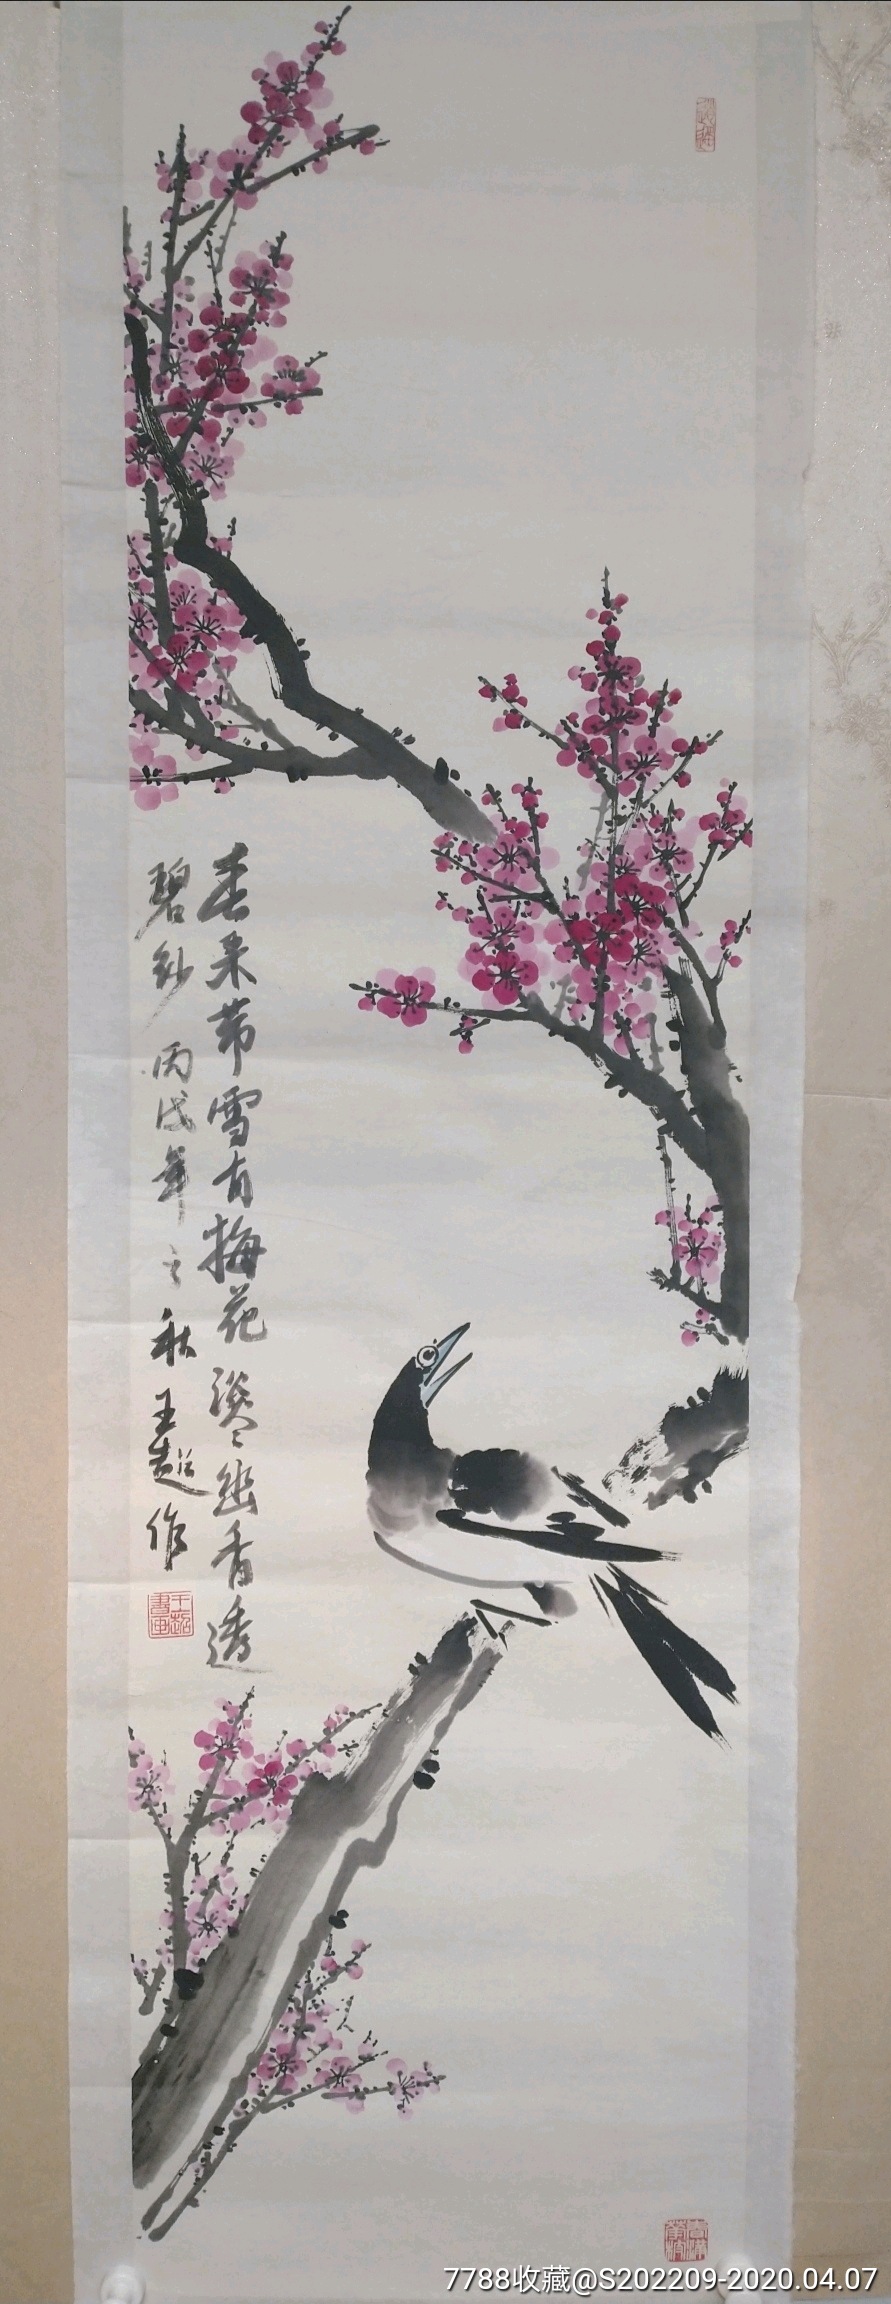 春来带雪有梅花淡淡幽香透
碧纱 丙戌年之秋王超作
王超書画
7788收藏@S202209-2020.04.07